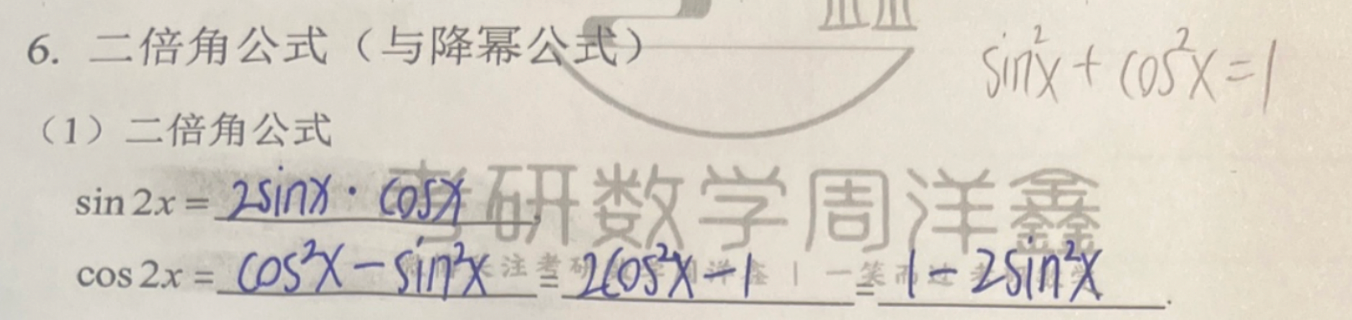 6. 二倍角公式（与降幂公式）
sin²x + cos²x = 1
（1）二倍角公式
sin 2x = 2sinx · cosx,
考研数学周洋鑫
cos 2x = cos²x − sin²x = 2cos²x − 1 = 1 − 2sin²x.
注考研
洋鑫 | 一笑而过